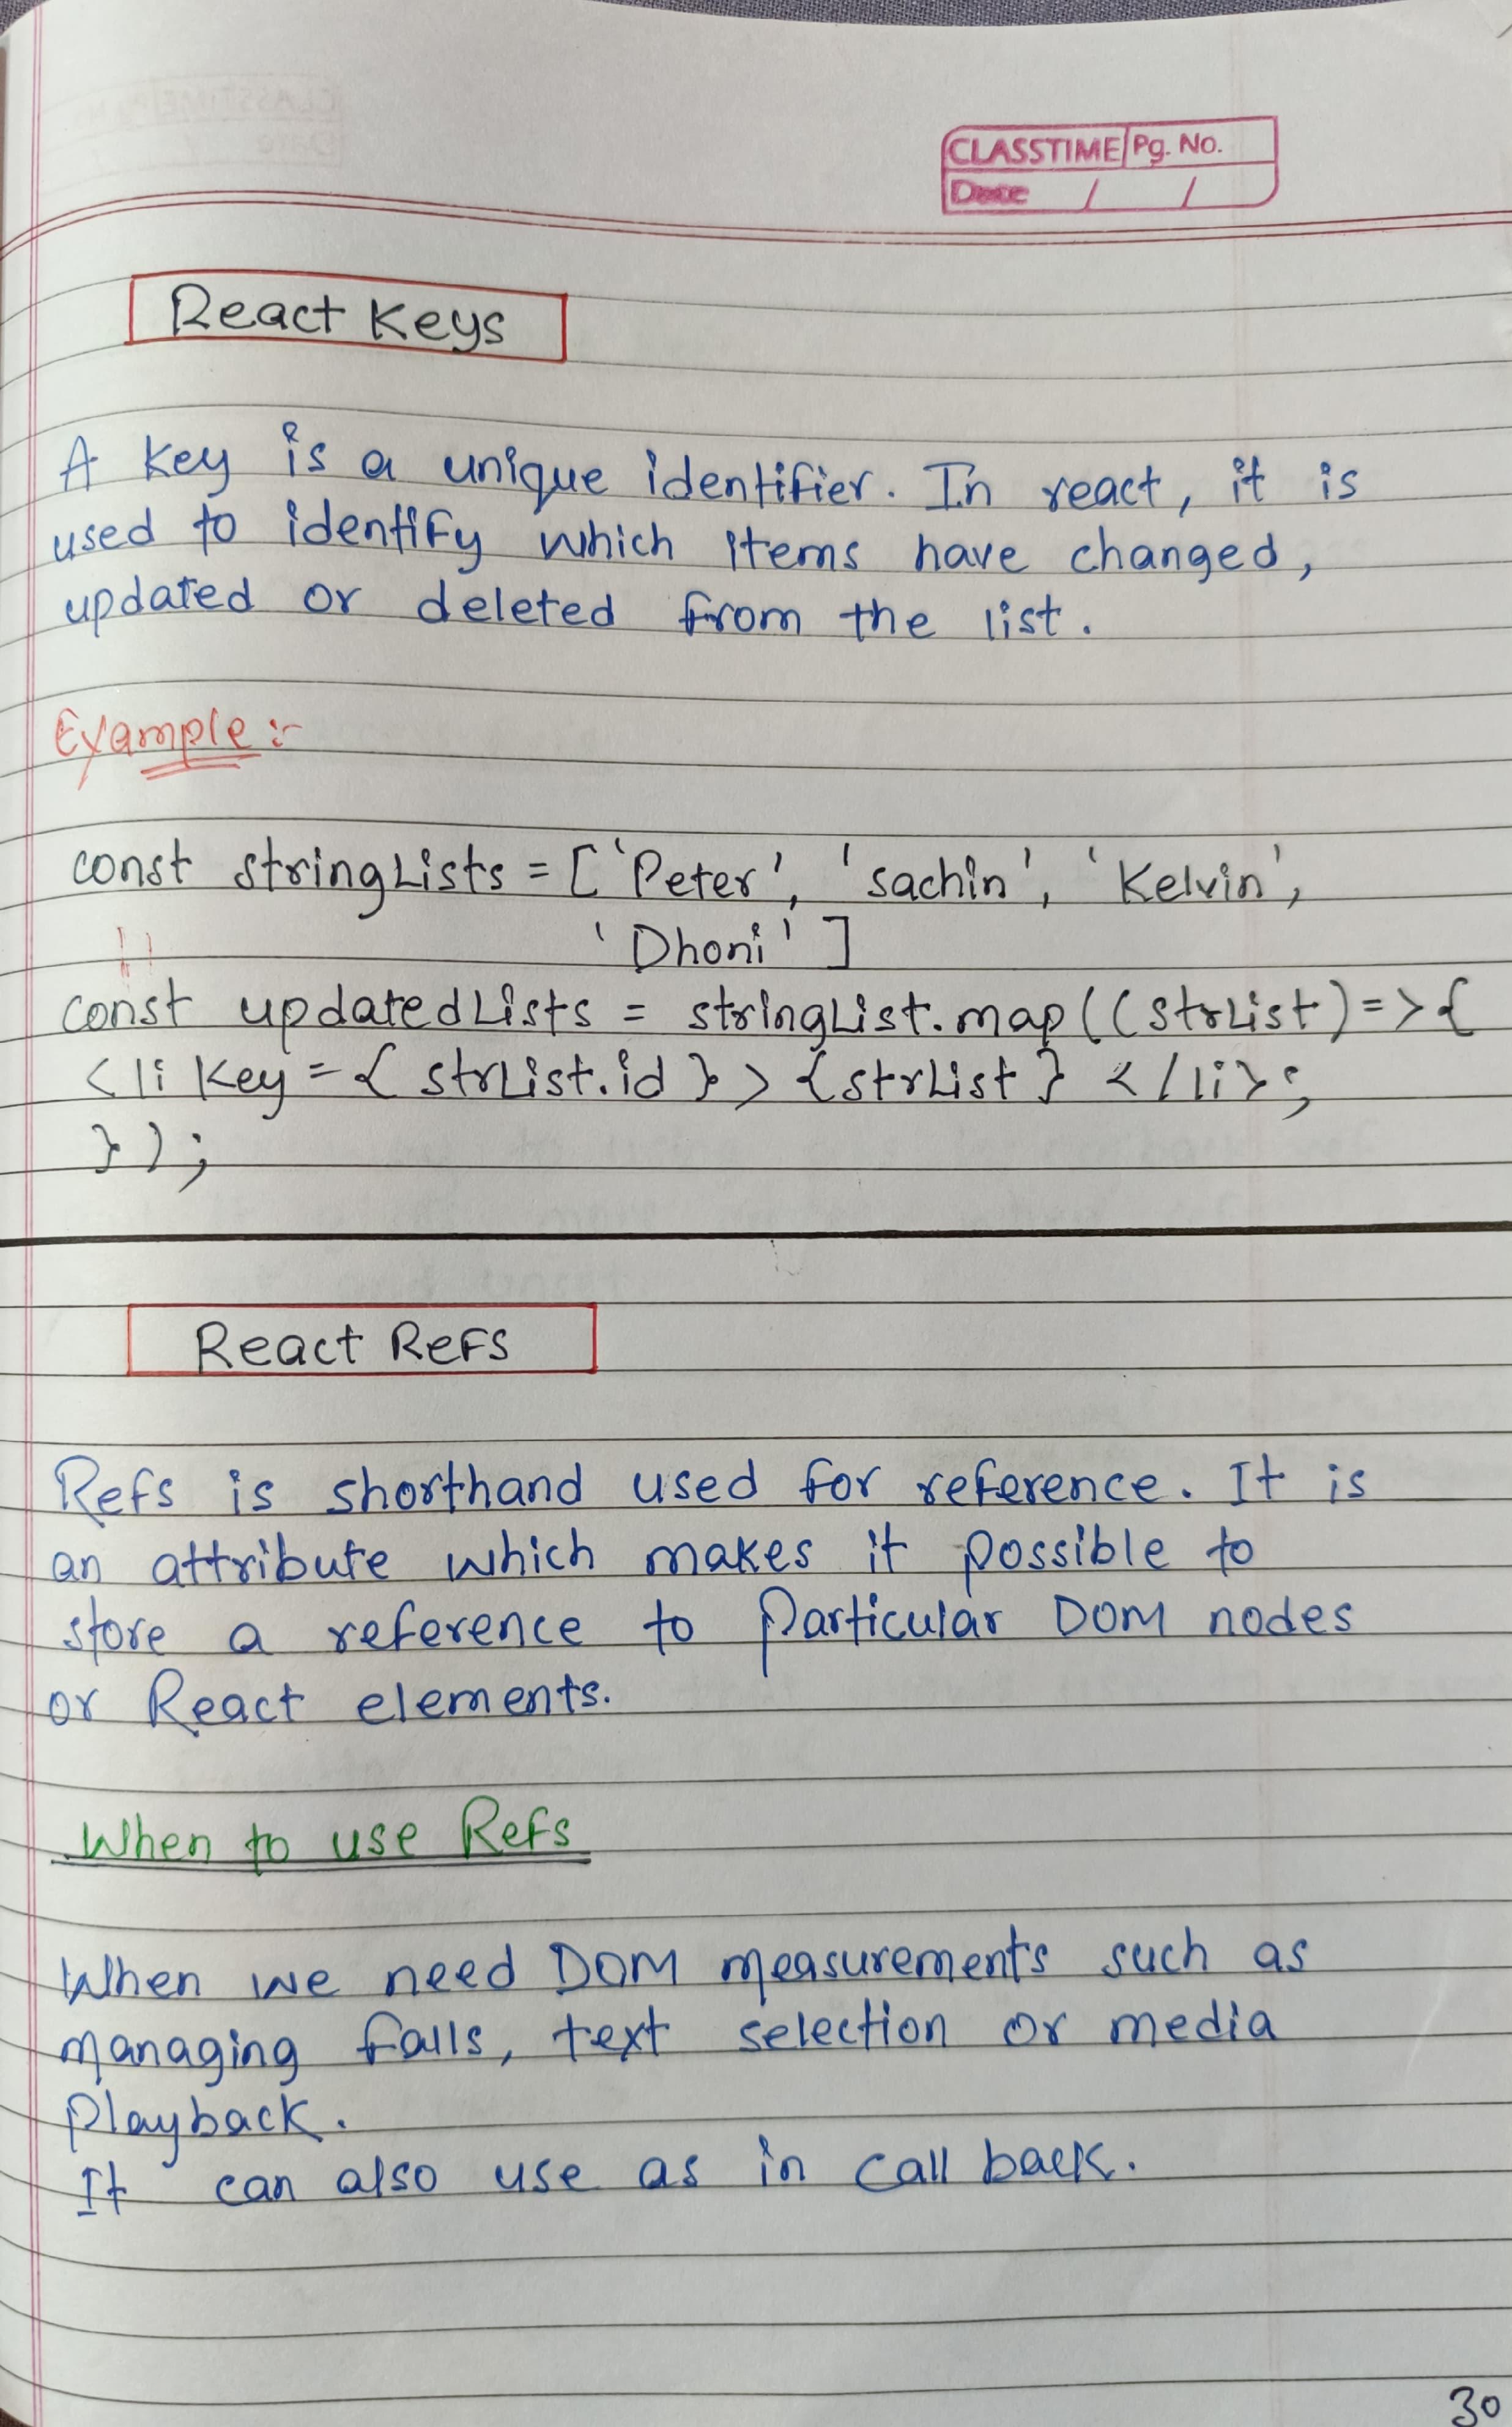 CLASSTIME Pg. No.
Date / /
React Keys
A key is a unique identifier. In react, it is
used to identify which items have changed,
updated or deleted from the list.
Example :-
const stringLists = ['Peter', 'sachin', 'Kelvin',
'Dhoni']
const updatedLists = stringList.map((strList)=>{
<li key={strList.id}>{strList}</li>;
});
React Refs
Refs is shorthand used for reference. It is
an attribute which makes it possible to
store a reference to Particular DOM nodes
or React elements.
When to use Refs
When we need DOM measurements such as
managing falls, text selection or media
Playback.
It can also use as in call back.
30